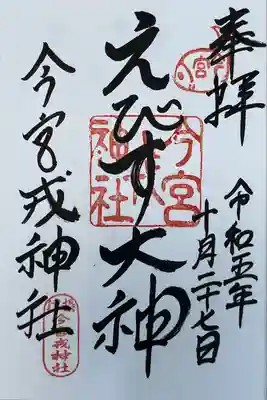 奉拝
令和五年
十月二十七日
えびす大神
今宮戎神社
今宮
戎
神社
今宮戎神社